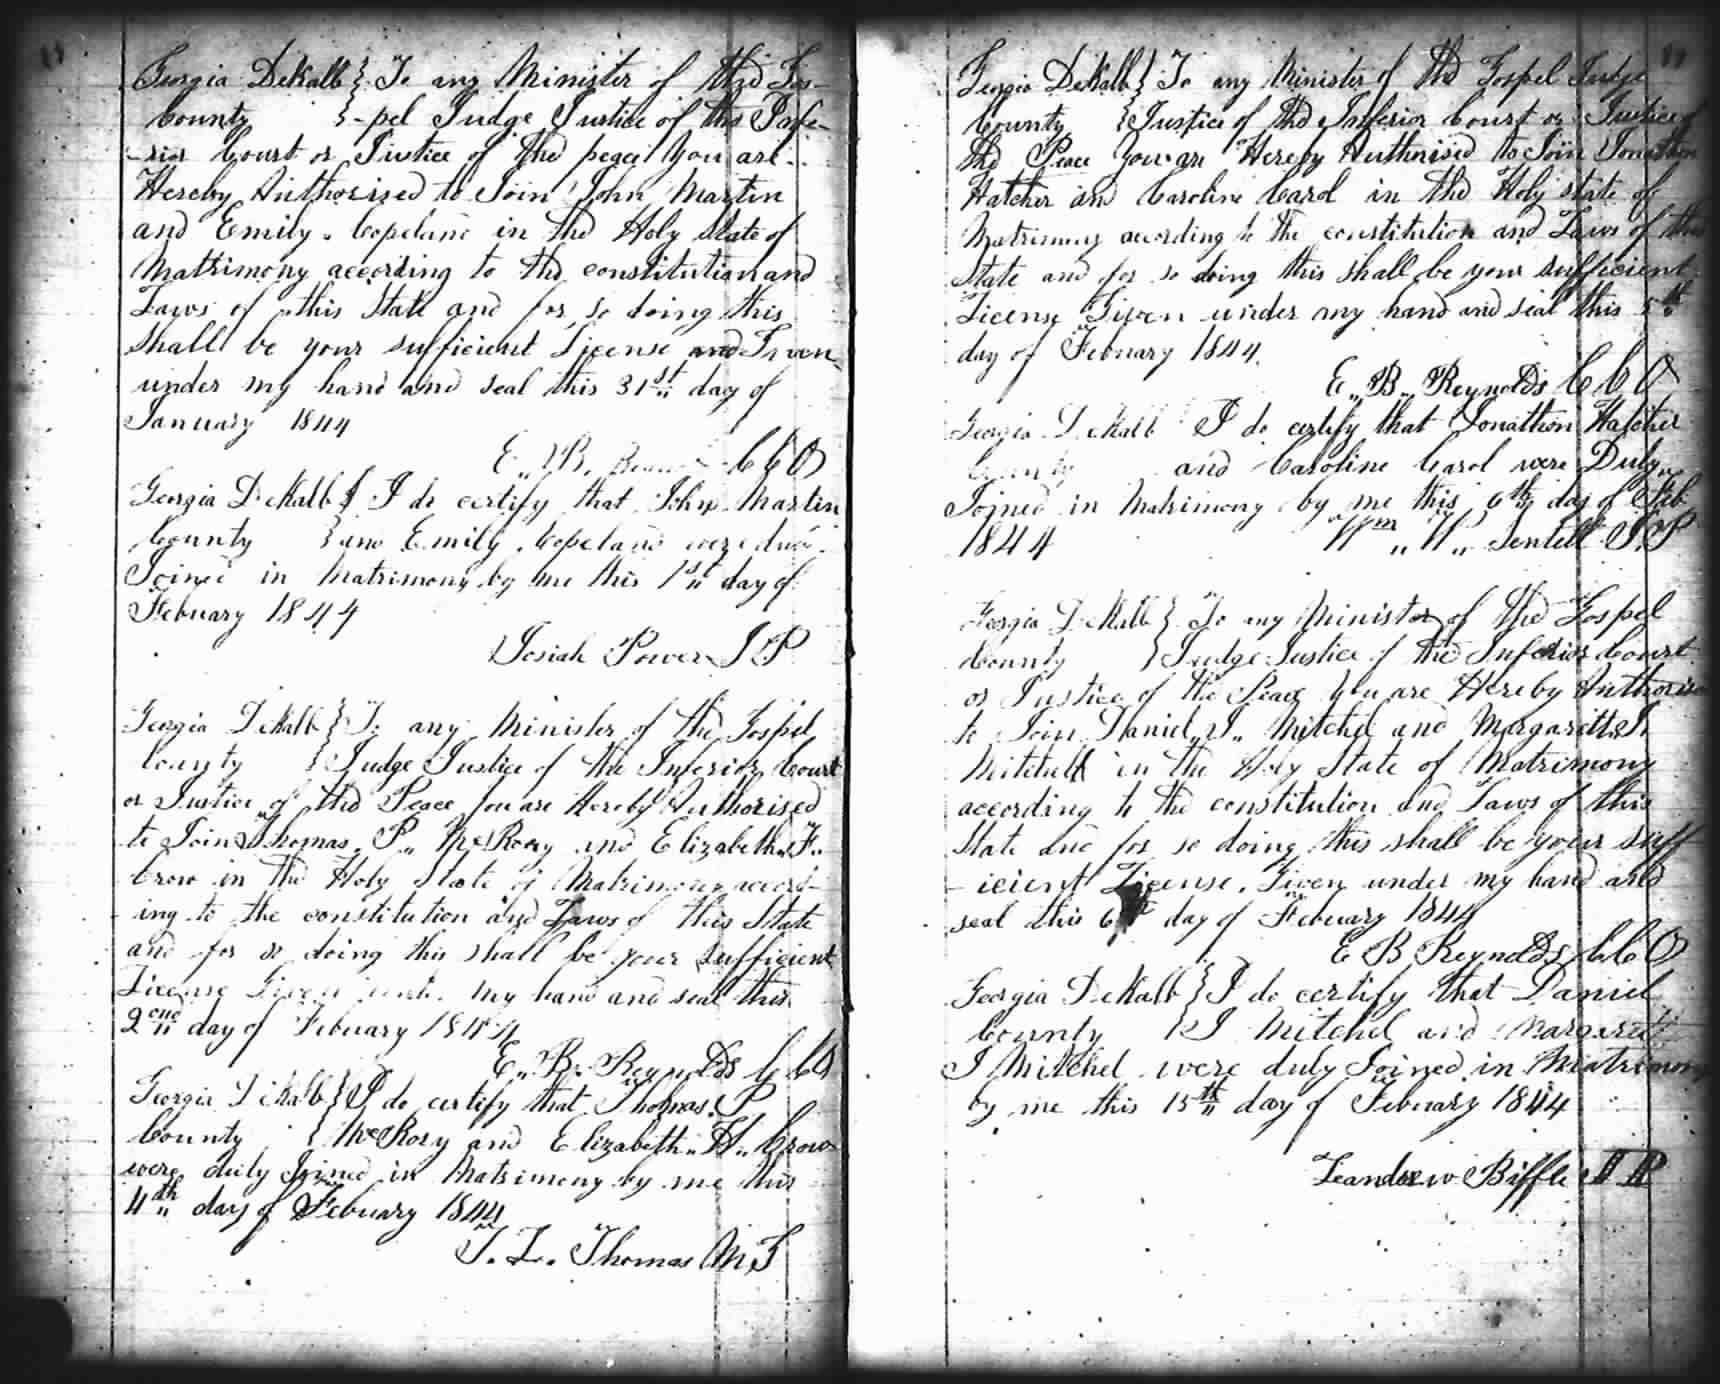 Georgia DeKalb } To any Minister of thd Gos-
County } -pel Judge Justice of the Infe-
-rior Court or Justice of thd peace You are
Hereby Authorised to Join John Martin
and Emily Copeland in thd Holy State of
Matrimony according to thd constitution and
Laws of this State and for so doing this
shall be your sufficient License and Given
under my hand and seal this 31st day of
January 1844
E. B. C C O
Georgia DeKalb } I do certify that John Martin
County } and Emily Copeland were duly
Joined in Matrimony by me this 1st day of
Febuary 1844
Josiah Power J P
Georgia DeKalb } To any Minister of thd Gospel
County } Judge Justice of the Inferior Court
or Justice of thd Peace You are Hereby Authorised
to Join Thomas P. McRory and Elizabeth H.
Crow in thd Holy State of Matrimony accord-
ing to the constitution and Laws of this State
and for so doing this shall be your sufficient
License Given under my hand and seal this
2ond day of Febuary 1844
E. B. Reynolds C C O
Georgia DeKalb } I do certify that Thomas P
County } McRory and Elizabeth H. Crow
were duly Joined in Matrimony by me this
4th day of Febuary 1844
T. L. Thomas M G
Georgia DeKalb } To any Minister of thd Gospel Judge
County } Justice of thd Inferior Court or Justice of
thd Peace You are Hereby Authorised to Join Jonathon
Hatcher and Caroline Carol in thd Holy state of
Matrimony according to the constitution and Laws of this
State and for so doing this shall be your sufficient
License Given under my hand and seal this 5th
day of Febuary 1844.
E. B. Reynolds C C O
Georgia DeKalb I do certify that Jonathon Hatcher
County and Caroline Carol were Duly
Joined in Matrimony by me this 6th day of Feb
1844 Wm W. Sentell J.P
Georgia DeKalb } To any Minister of thd Gospel
County } Judge Justice of thd Inferior Court
or Justice of the Peace You are Hereby Authorise
to Join Daniel J. Mitchel and Margarett J.
Mitchell in the Holy State of Matrimony
according to thd constitution and Laws of this
State and for so doing this shall be your suff
-icient License. Given under my hand and
seal this 6th day of Febuary 1844
E B Reynolds C C O
Georgia DeKalb } I do certify that Daniel
County } J Mitchel and Margaret
J Mitchel were duly Joined in Matrimony
by me this 15th day of Febuary 1844
Leandrew Biffle J P